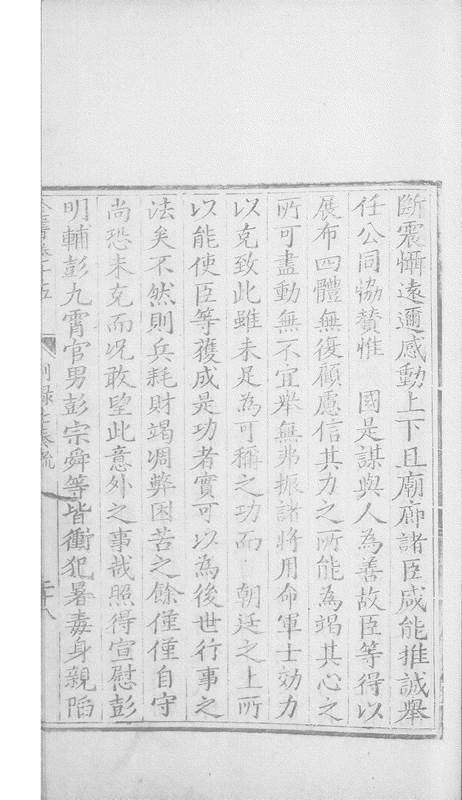 斷震懾遠邇感動上下且廟廊諸臣咸能推誠舉
任公同協贊惟　國是謀與人為善故臣等得以
展布四體無復顧慮信其力之所能為竭其心之
所可盡動無不宜舉無弗振諸將用命軍士効力
以克致此雖未足為可稱之功而　朝廷之上所
以能使臣等獲成是功者實可以為後世行事之
法矣不然則兵耗財竭凋弊困苦之餘僅僅自守
尚恐未克而况敢望此意外之事哉照得宣慰彭
明輔彭九霄官男彭宗舜等皆衝犯暑毒身親陷
全書卷十五　別錄七奏疏　二十八